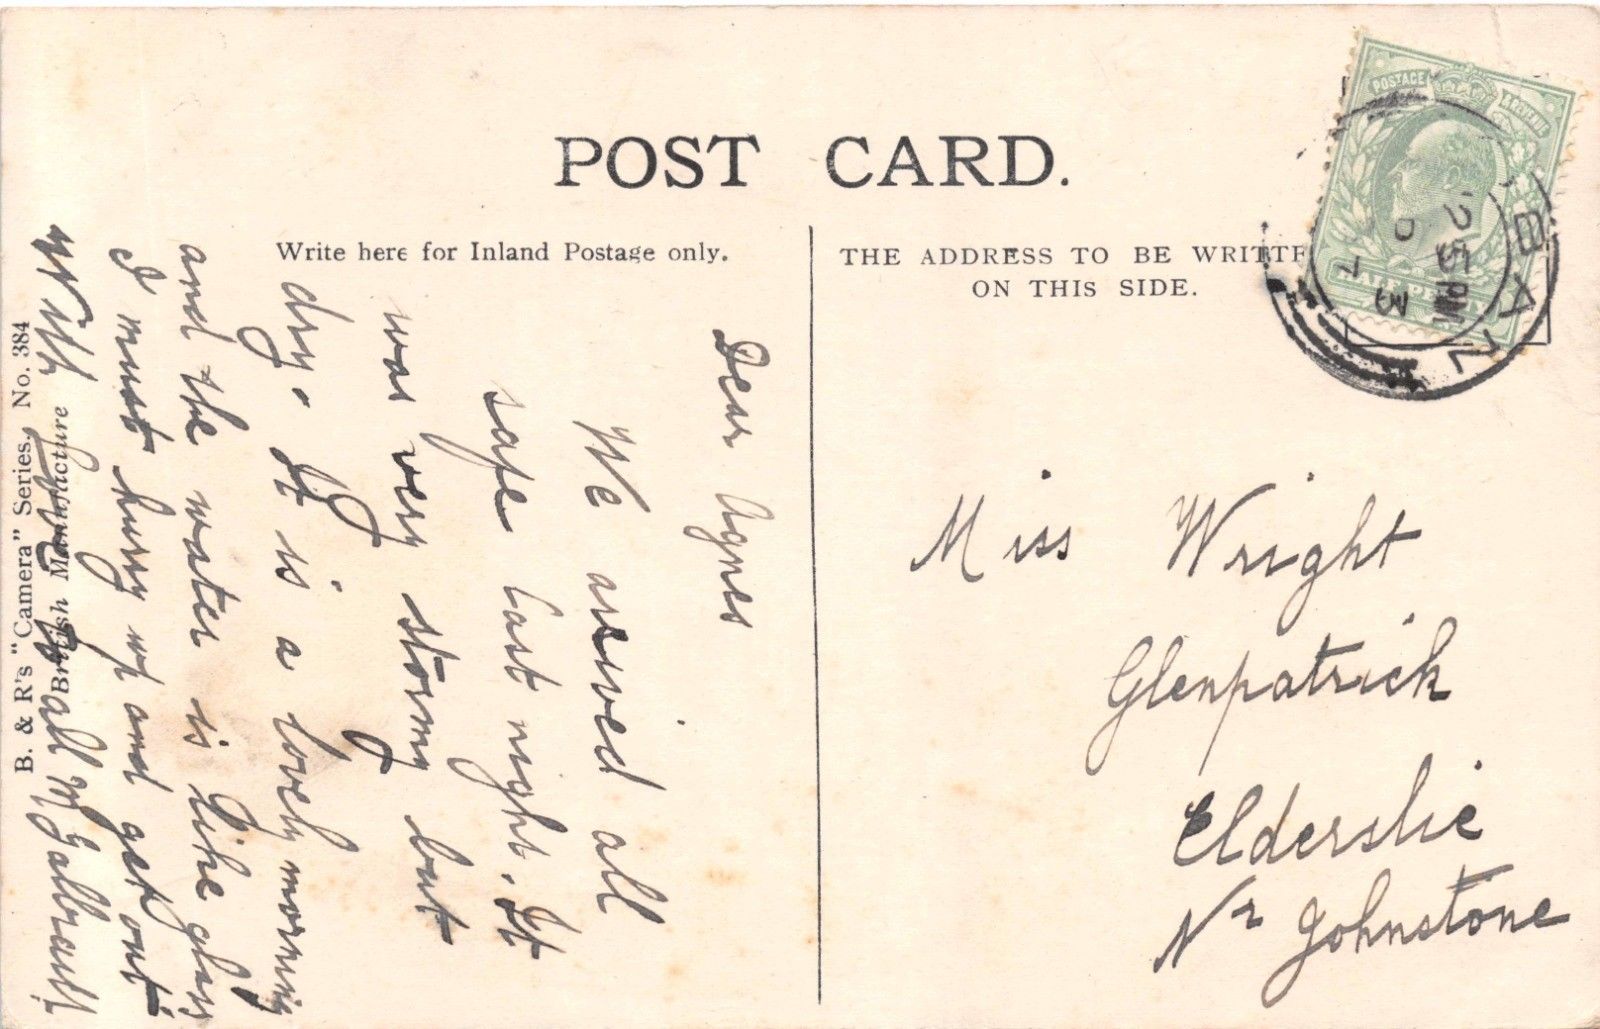 POST CARD.
Write here for Inland Postage only.
THE ADDRESS TO BE WRITTE
ON THIS SIDE.
POSTAGE REVENUE
HALF PENNY
25 PM
Dear Agnes
We arrived all
safe last night. It
was very stormy but
dry. It is a lovely morning
and the water is like glass
I must hurry up and get out
With to all M Galbraith
Miss Wright
Glenpatrick
Elderslie
Nr Johnstone
B. & R's "Camera" Series. No. 384
British Manufacture